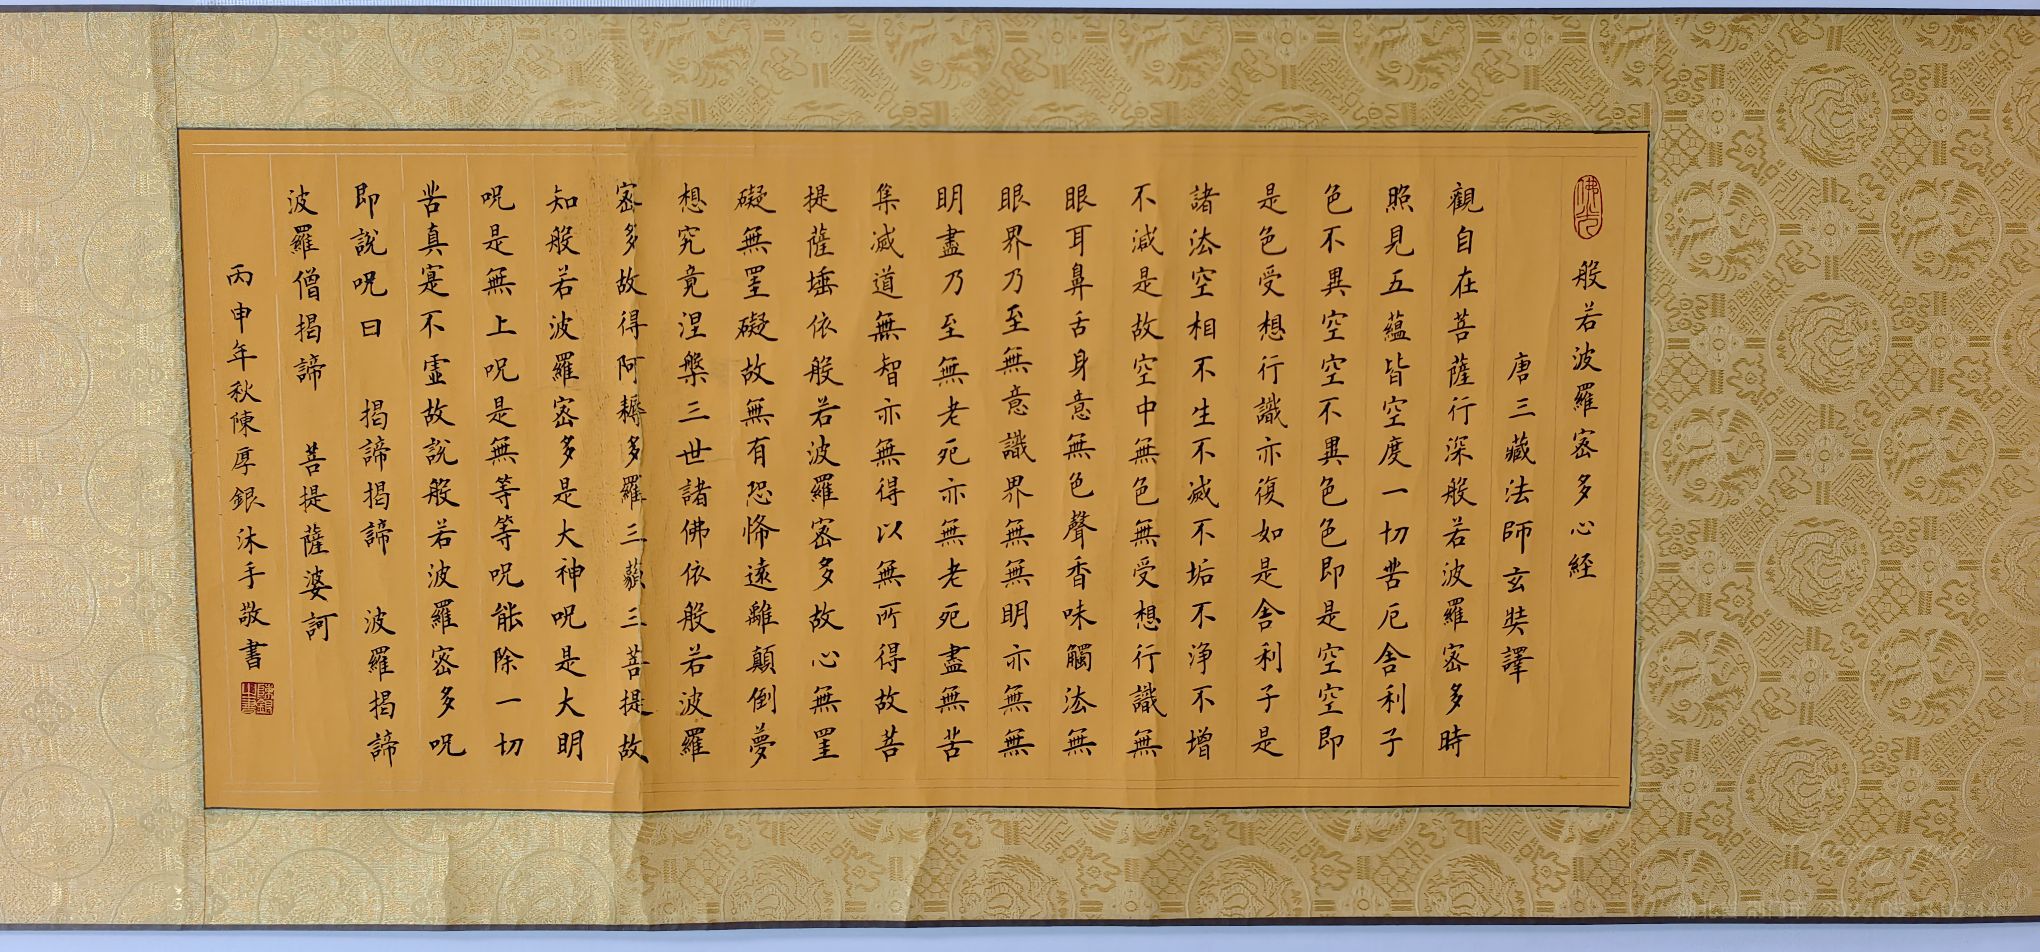 佛光
般若波羅密多心経
唐三藏法師玄奘譯
觀自在菩薩行深般若波羅密多時
照見五蘊皆空度一切苦厄舍利子
色不異空空不異色色即是空空即
是色受想行識亦復如是舍利子是
諸法空相不生不滅不垢不淨不增
不減是故空中無色無受想行識無
眼耳鼻舌身意無色聲香味觸法無
眼界乃至無意識界無無明亦無無
明盡乃至無老死亦無老死盡無苦
集滅道無智亦無得以無所得故菩
提薩埵依般若波羅密多故心無罣
礙無罣礙故無有恐怖遠離顛倒夢
想究竟涅槃三世諸佛依般若波羅
密多故得阿耨多羅三藐三菩提故
知般若波羅密多是大神呪是大明
呪是無上呪是無等等呪能除一切
苦真寔不虛故說般若波羅密多呪
即說呪曰 揭諦揭諦 波羅揭諦
波羅僧揭諦 菩提薩婆訶
丙申年秋陳厚銀沐手敬書